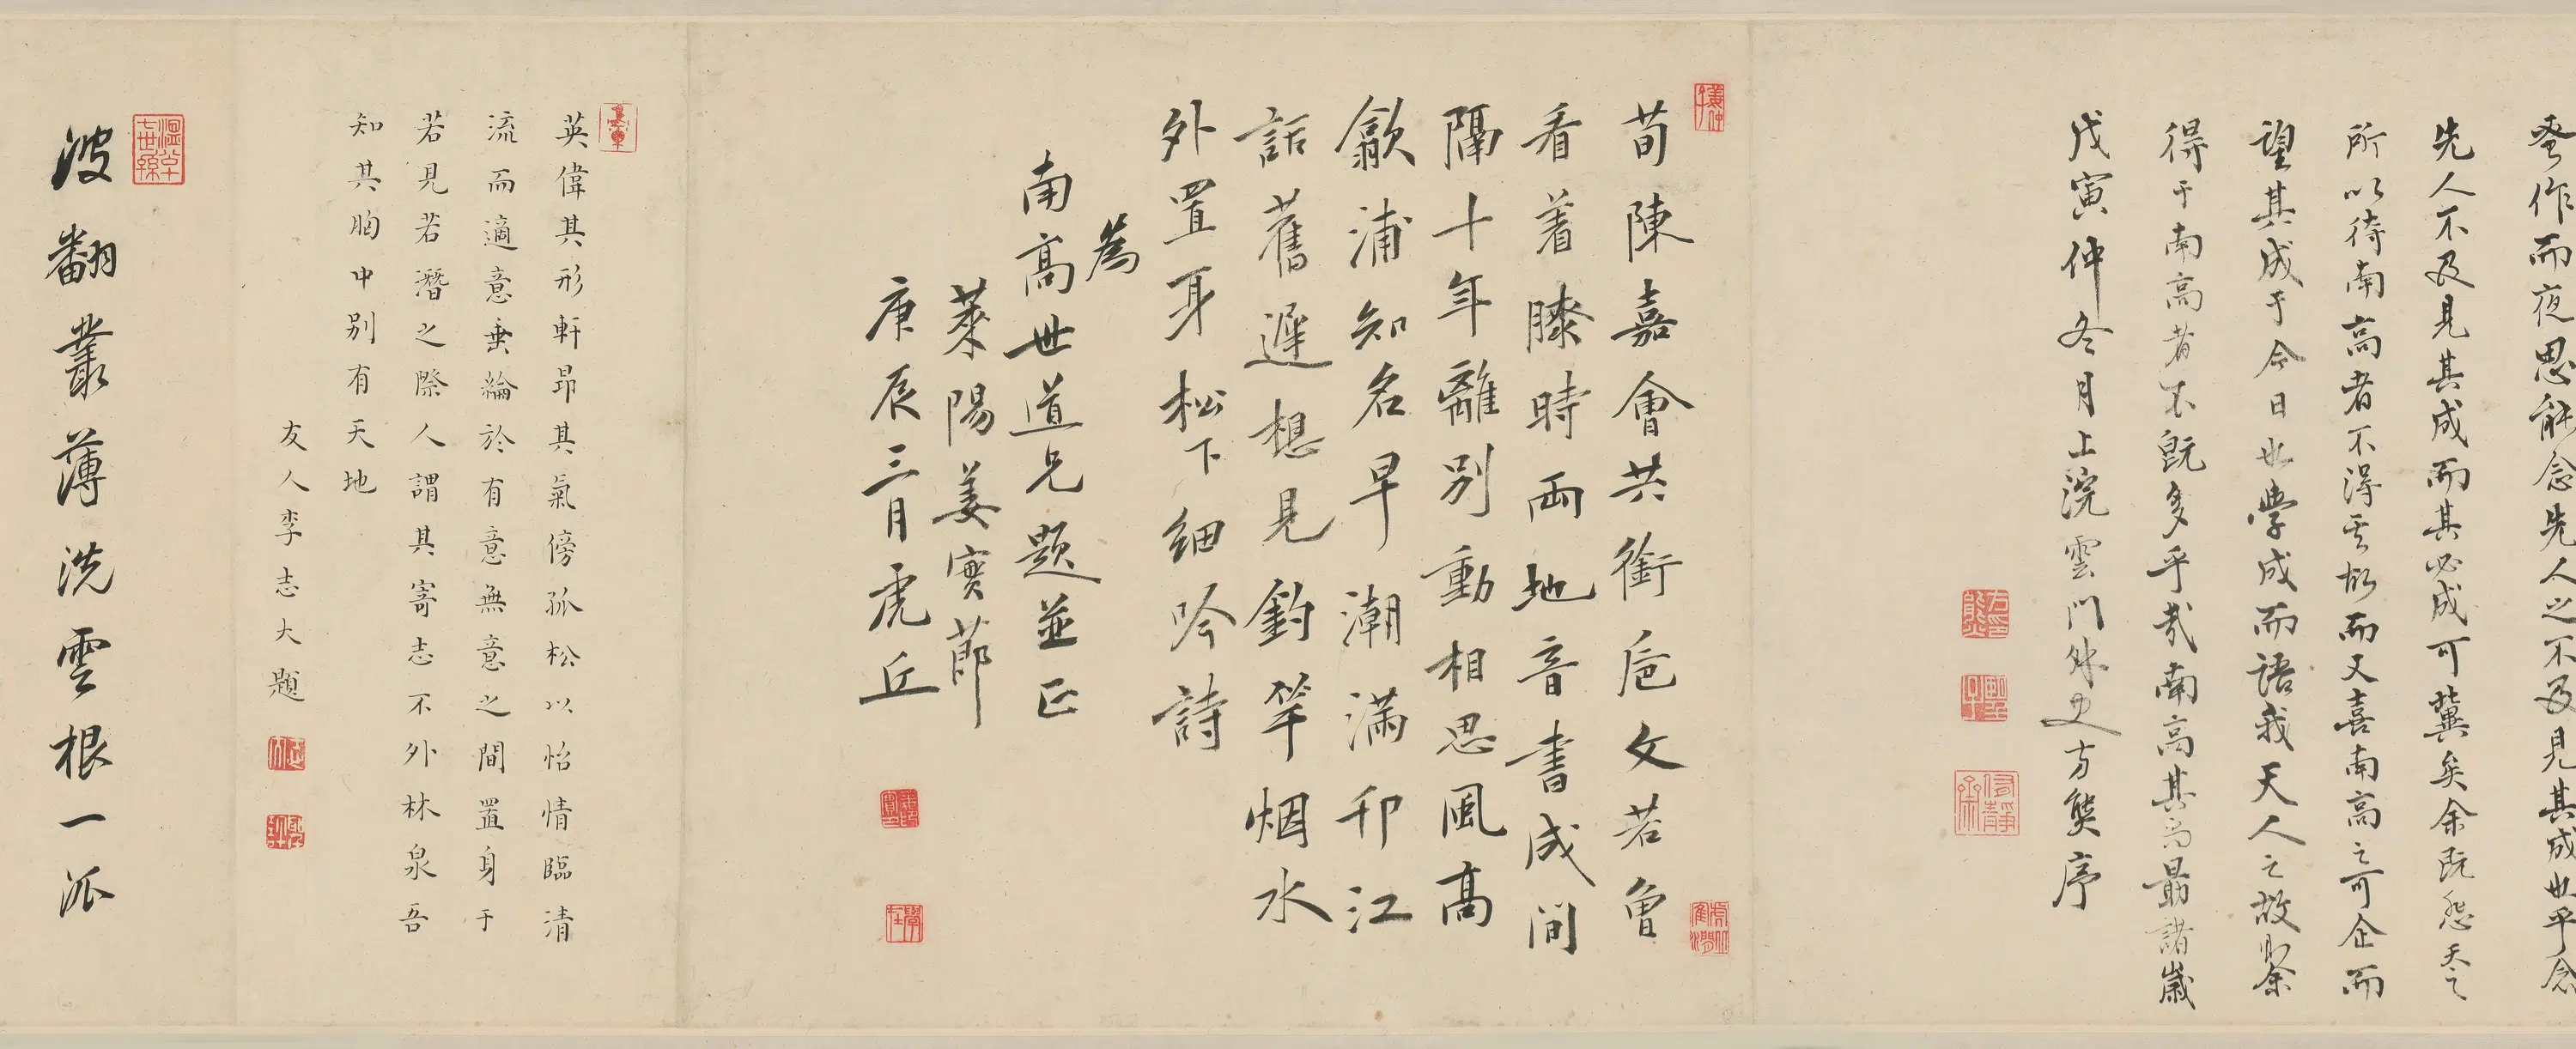 蚤作而夜思能念先人之不及見其成也乎念
先人不及見其成而其必成可冀矣余既怨天之
所以待南高者不得云故而又喜南高之可企而
望其成于今日也學成而語我天人之故則余
得于南高者不既多乎哉南高其為最諸歲
戊寅仲冬月上浣雲門外史方熊序
荀陳嘉會共銜巵文若曾
看著膝時兩地音書成間
隔十年離別動相思風高
歙浦知名早潮滿邗江
話舊遲想見釣竿烟水
外置身松下細吟詩
為
南高世道兄題並正
萊陽姜實節
庚辰三月虎丘
英偉其形軒昂其氣傍孤松以怡情臨清
流而適意垂綸於有意無意之間置身于
若見若潛之際人謂其寄志不外林泉吾
知其胸中別有天地
友人李志大題
波翻叢薄洗雲根一派